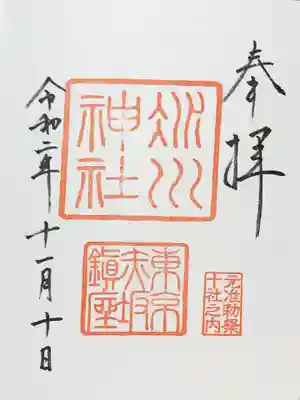 奉拝
冰川
神社
東京
赤坂
鎭座
元准勅祭
十社之内
令和二年十一月十日